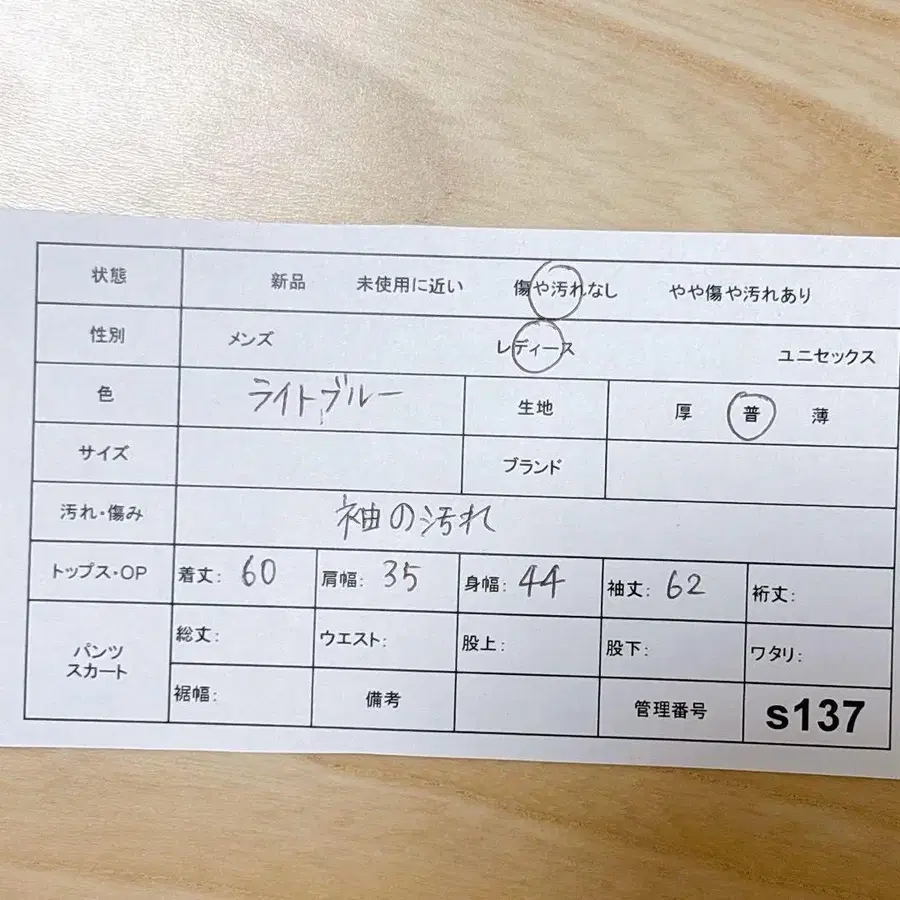 状態 新品 未使用に近い 傷や汚れなし やや傷や汚れあり
性別 メンズ レディース ユニセックス
色 ライトブルー 生地 厚 普 薄
サイズ ブランド
汚れ・傷み 袖の汚れ
トップス・OP 着丈: 60 肩幅: 35 身幅: 44 袖丈: 62 裄丈:
パンツ
スカート
総丈: ウエスト: 股上: 股下: ワタリ:
裾幅: 備考 管理番号 s137